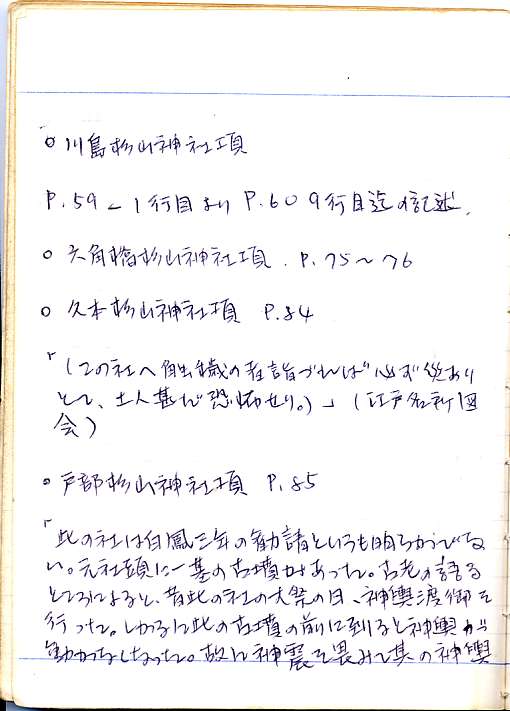 ○ 川島杉山神社項
P.59 - 1行目より P.60 9行目迄の記述、
○ 六角橋杉山神社項. P.75～76
○ 久本杉山神社項 P.84
「(この社へ触穢の者詣づれば必ず祟あり
とて、土人甚だ恐怖せり。)」(江戸名所図
会)
○ 戸部杉山神社項 P.85
「此の社は白鳳三年の勧請といふも明らかでな
い。元社頭に一基の古墳があった。古老の語る
ところによると、昔此の社の大祭の日、神輿渡御を
行った。しかるに此の古墳の前に到ると神輿が
動かなくなった。故に神霊を畏みて其の神輿